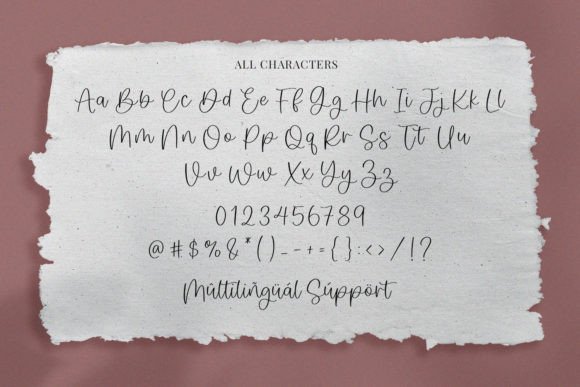 ALL CHARACTERS
Aa Bb Cc Dd Ee Ff Gg Hh Ii Jj Kk Ll
Mm Nn Oo Pp Qq Rr Ss Tt Uu
Vv Ww Xx Yy Zz
0123456789
@ # $ % & * ( ) _ - + = { } : < > / ! ?
Múltilïñgüál Súppört